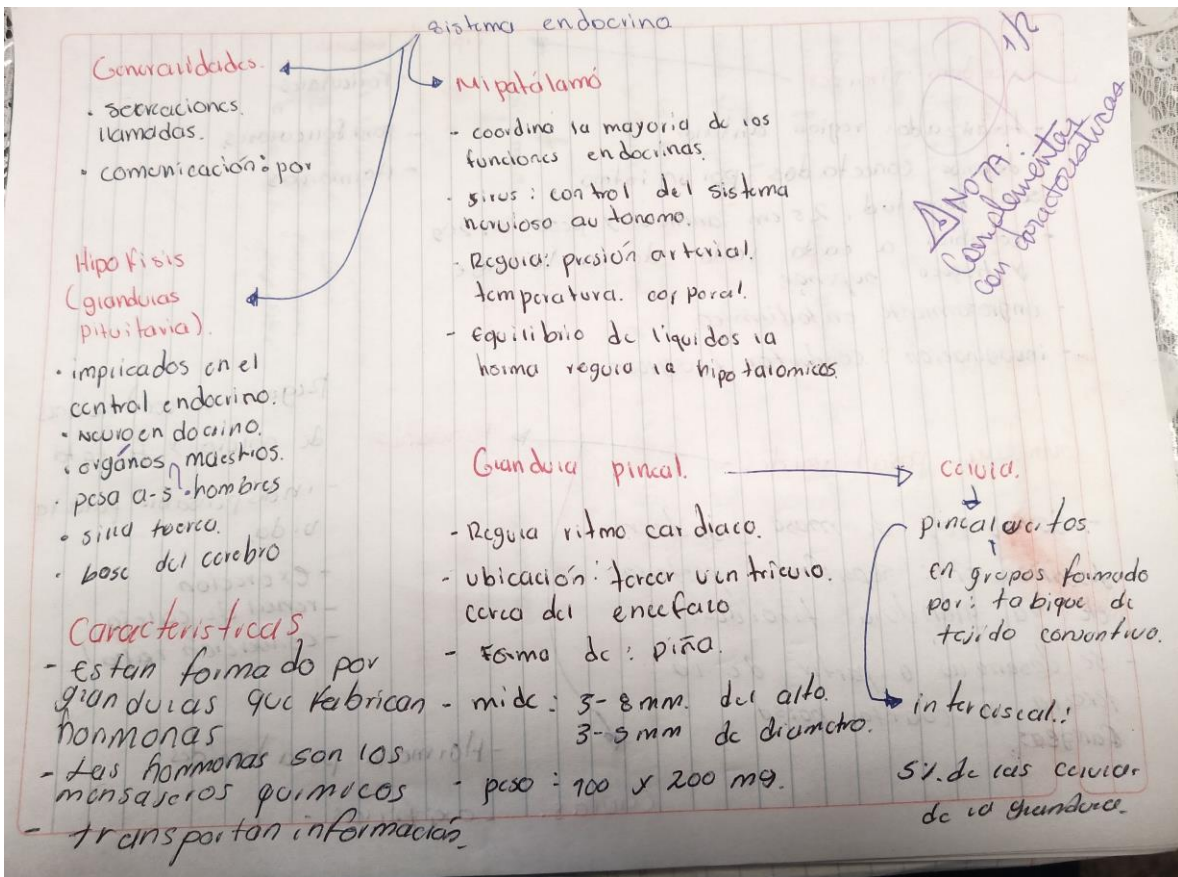 sistema endocrino
1/2
⚠ NOTA.
Complementar
con caracteristicas
Generalidades.
• secreaciones.
llamadas.
• comunicación: por
Hipofisis
(glandulas
pituitaria).
• implicados en el
control endocrino.
• neuroendocrino.
• orgános maestros.
• pesa a-5 hombres
• silla toerca.
• base del cerebro
Caracteristicas
- Estan formado por
glandulas que fabrican
honmonas
- Las honmonas son los
mensajeros quimicos
- transportan información.
Mipatálamó
- coordina la mayoria de los
funciones endocrinas.
- sirus: control del sistema
nervioso autonomo.
- Regula: presión arterial.
temperatura. corporal.
- Equilibrio de líquidos la
horma regula la hipotalomicos.
Glandula pineal.
- Regula ritmo cardiaco.
- ubicación: tercer ventriculo.
cerca del enecfalo
- Forma de: piña.
- mide: 3-8 mm. del alto.
3-5 mm de diametro.
- peso: 100 x 200 mg.
celula.
pinealocitos.
en grupos formado
por: tabique de
tejido conventivo.
interciscal.:
5%. de las celular
de la glandula.